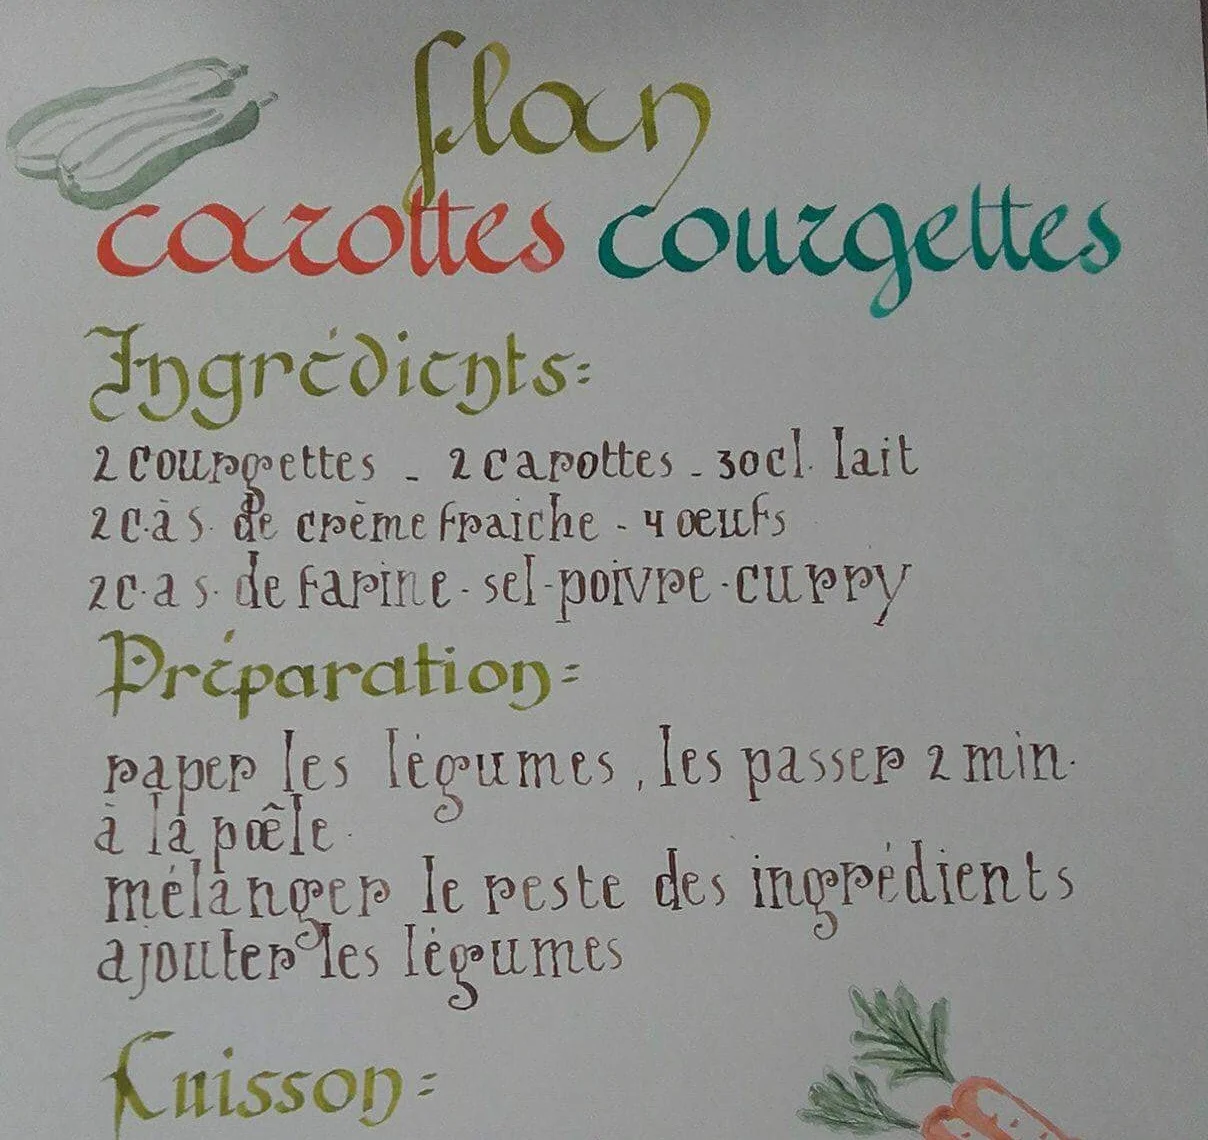 flan
carottes courgettes
Ingrédients:
2 courgettes - 2 carottes - 30cl. lait
2 c.à s. de crème fraiche - 4 œufs
2 c.a s. de farine - sel - poivre - curry
Préparation:
raper les légumes, les passer 2 min.
à la pœle.
mélanger le reste des ingrédients
ajouter les légumes
Cuisson: